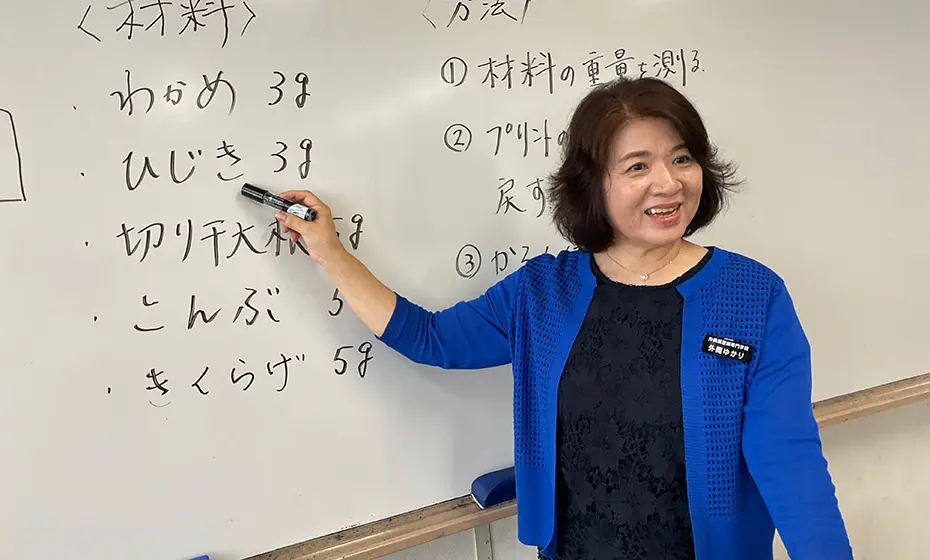 〈材料〉
・わかめ 3g
・ひじき 3g
・切り干大根 5g
・こんぶ 5
・きくらげ 5g
〈方法〉
① 材料の重量を測る.
② プリントの
戻す
③
外間ゆかり